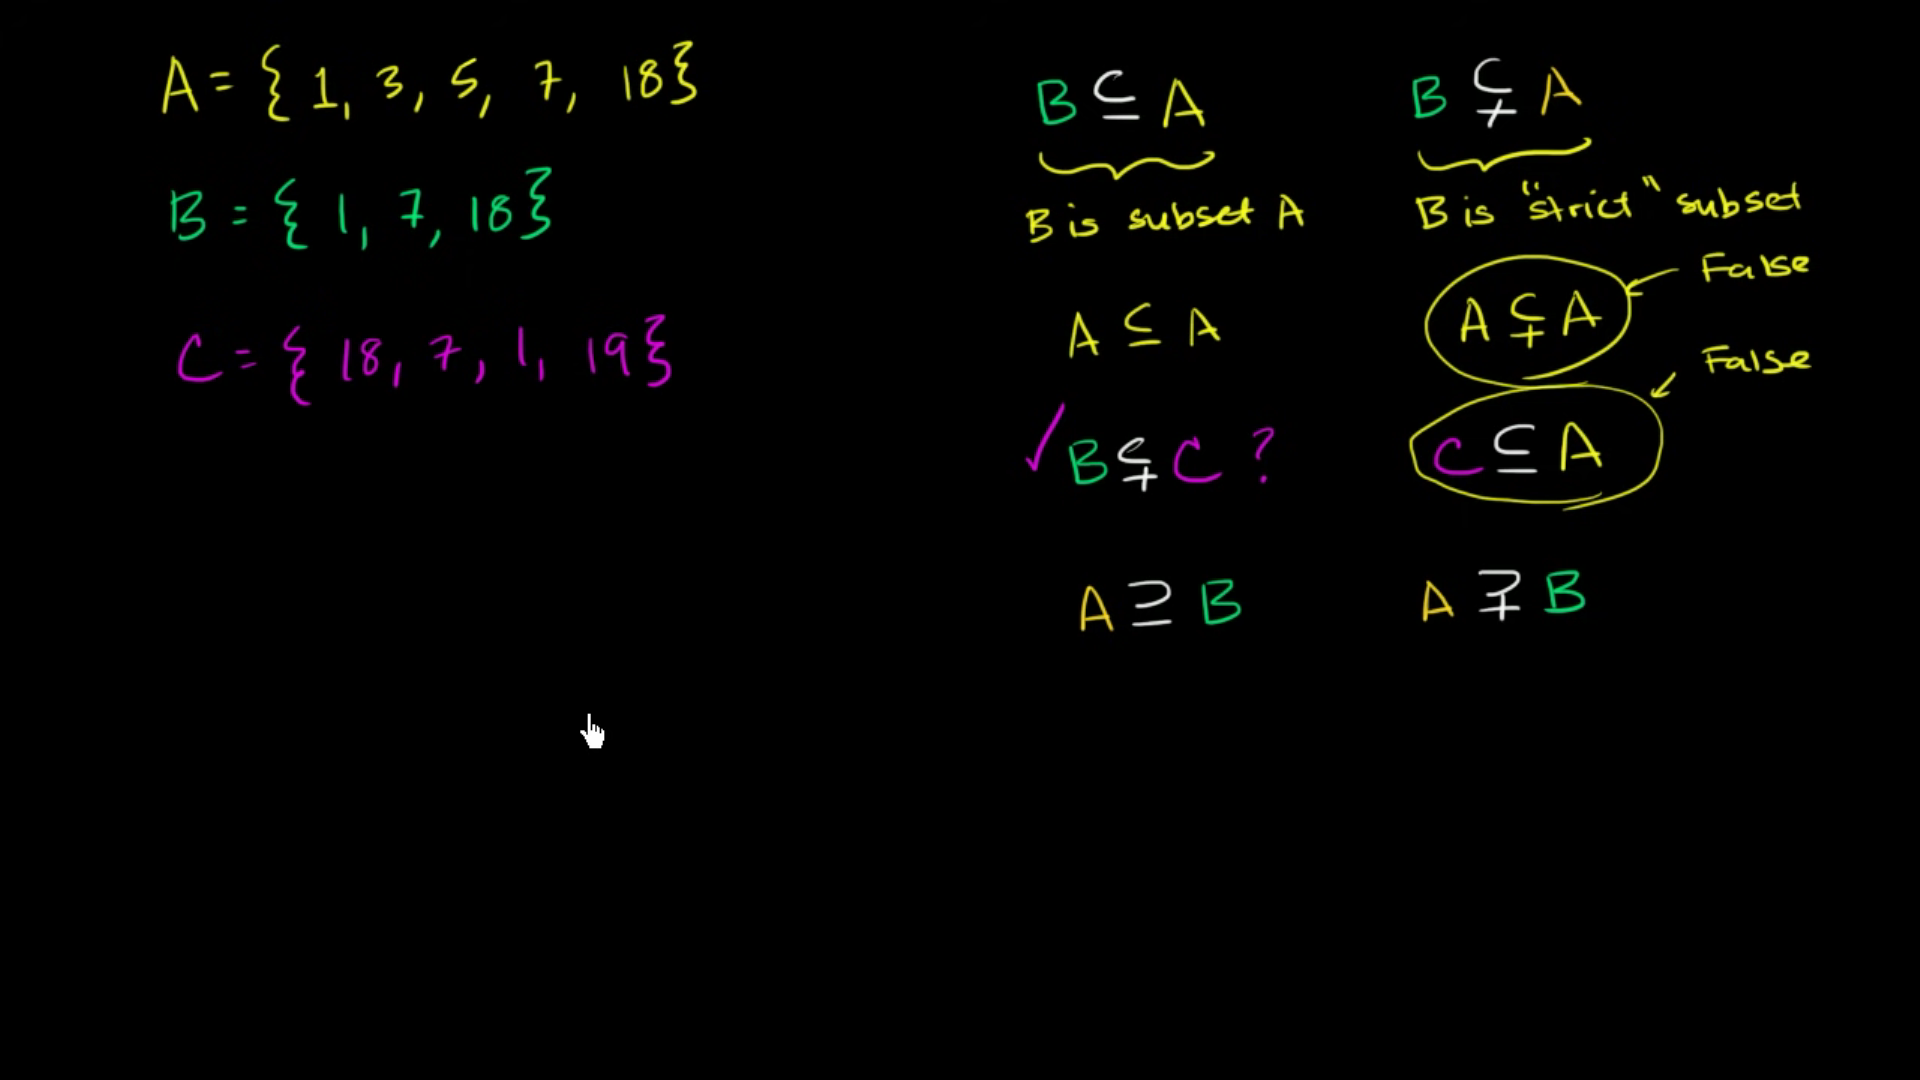 A = { 1, 3, 5, 7, 18}
B = { 1, 7, 18}
C = { 18, 7, 1, 19}
B ⊆ A
B is subset A
A ⊆ A
✓ B ⊊ C ?
A ⊇ B
B ⊊ A
B is "strict" subset
False
A ⊊ A
False
C ⊆ A
A ⊋ B